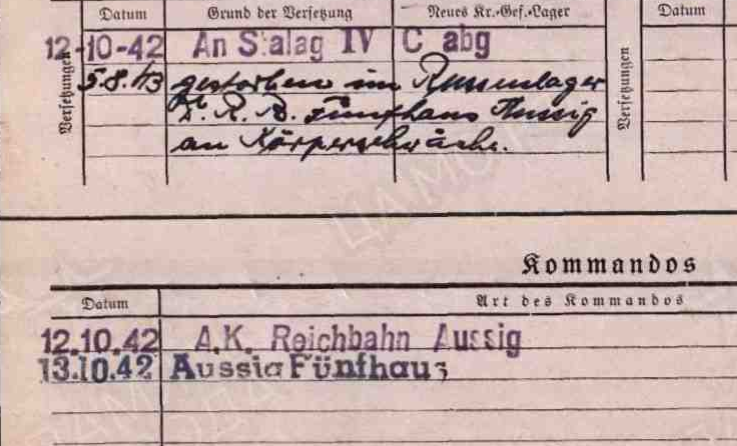 Datum Grund der Versetzung Neues Kr.-Gef.-Lager Datum
12-10-42 An Stalag IV C abg
Versetzungen
Versetzungen
5.8.43 gestorben im Russenlager
D. R. B. Fünfhaus Aussig
an Körperschwäche.
ЦАМО
Kommandos
Datum Art des Kommandos
12.10.42 A.K. Reichbahn Aussig
13.10.42 Aussig Fünfhaus